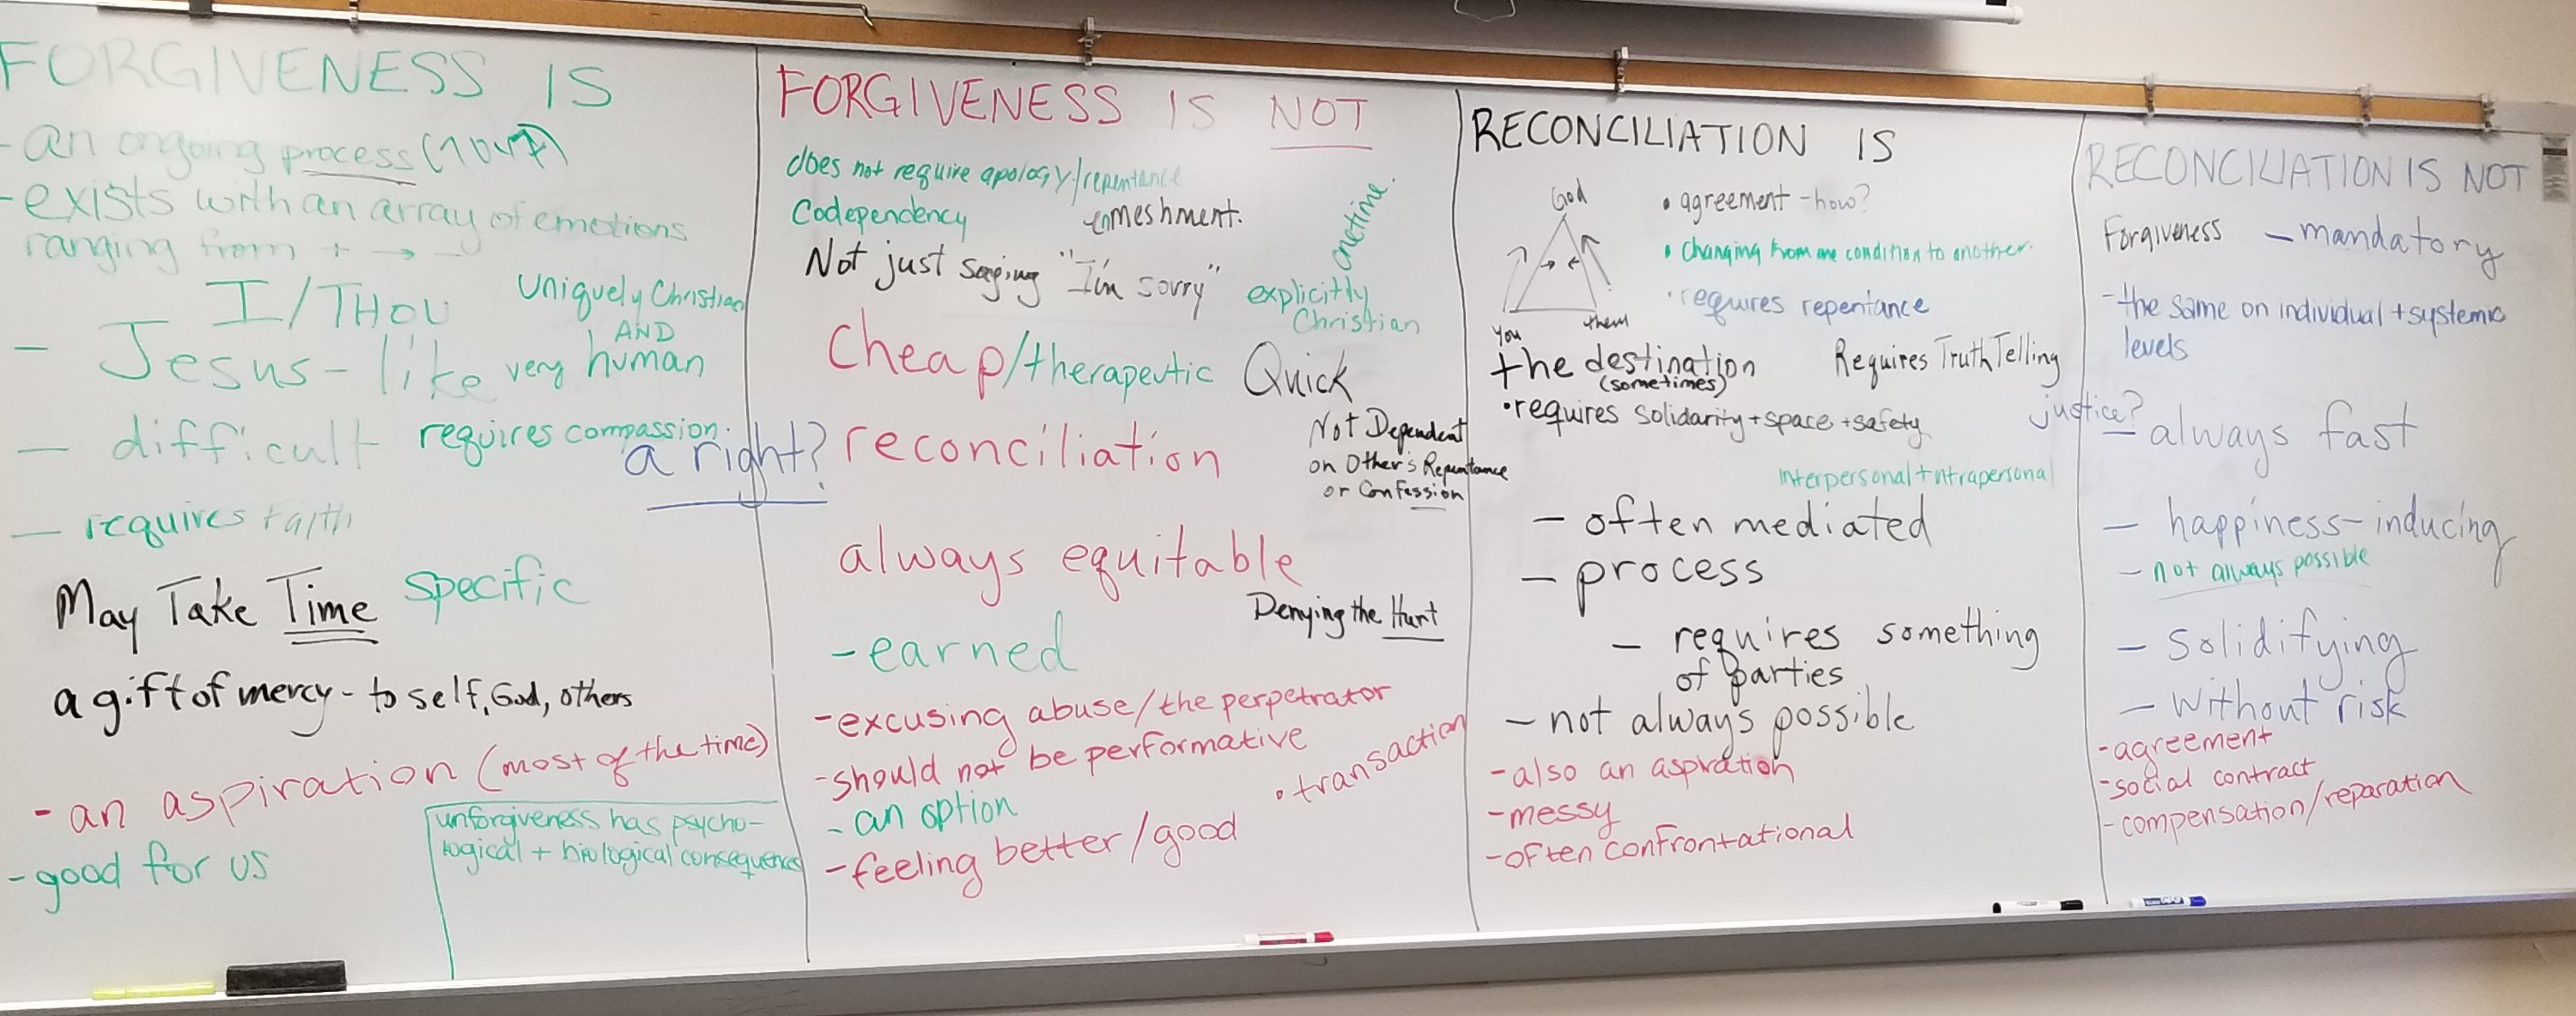 FORGIVENESS IS
- an ongoing process (70x7)
- exists with an array of emotions
ranging from + → -
I/THOU
Uniquely Christian
AND
very human
- Jesus-like
- difficult
requires compassion.
a right?
- requires faith
May Take Time
specific
a gift of mercy - to self, God, others
- an aspiration (most of the time)
- good for us
unforgiveness has psycho-
logical + biological consequences
FORGIVENESS IS NOT
does not require apology/repentance
Codependency
enmeshment.
onetime.
Not just saying "I'm sorry"
explicitly
Christian
cheap/therapeutic
Quick
reconciliation
Not Dependent
on Other's Repentance
or Confession
always equitable
Denying the Hurt
- earned
- excusing abuse/the perpetrator
- should not be performative
• transaction
- an option
- feeling better/good
RECONCILIATION IS
God
you
them
• agreement - how?
• Changing from one condition to another.
• requires repentance
the destination
(sometimes)
Requires Truth Telling
• requires solidarity + space + safety
justice?
interpersonal + intrapersonal
- often mediated
- process
- requires something
of parties
- not always possible
- also an aspiration
- messy
- often confrontational
RECONCILIATION IS NOT
Forgiveness
- mandatory
- the same on individual + systemic
levels
- always fast
- happiness-inducing
- not always possible
- solidifying
- without risk
- agreement
- social contract
- compensation/reparation